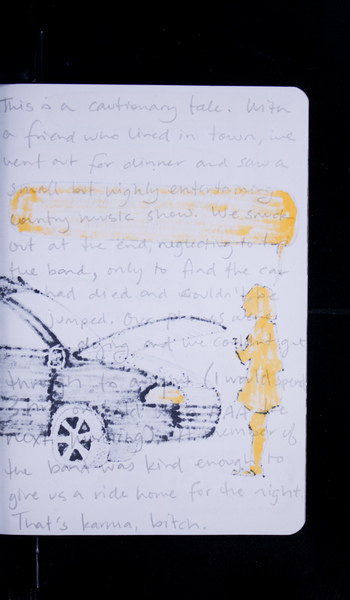 This is a cautionary tale. With
a friend who lived in town, we
went out for dinner and saw a
small but highly entertaining
country music show. We snuck
out at the end, neglecting to tip
the band, only to find the car
had died and wouldn't be
jumped. Our phones were
dying and we couldn't get
through to (I would spend
on hold AAA the
next A member of
the band was kind enough to
give us a ride home for the night.
That's karma, bitch.